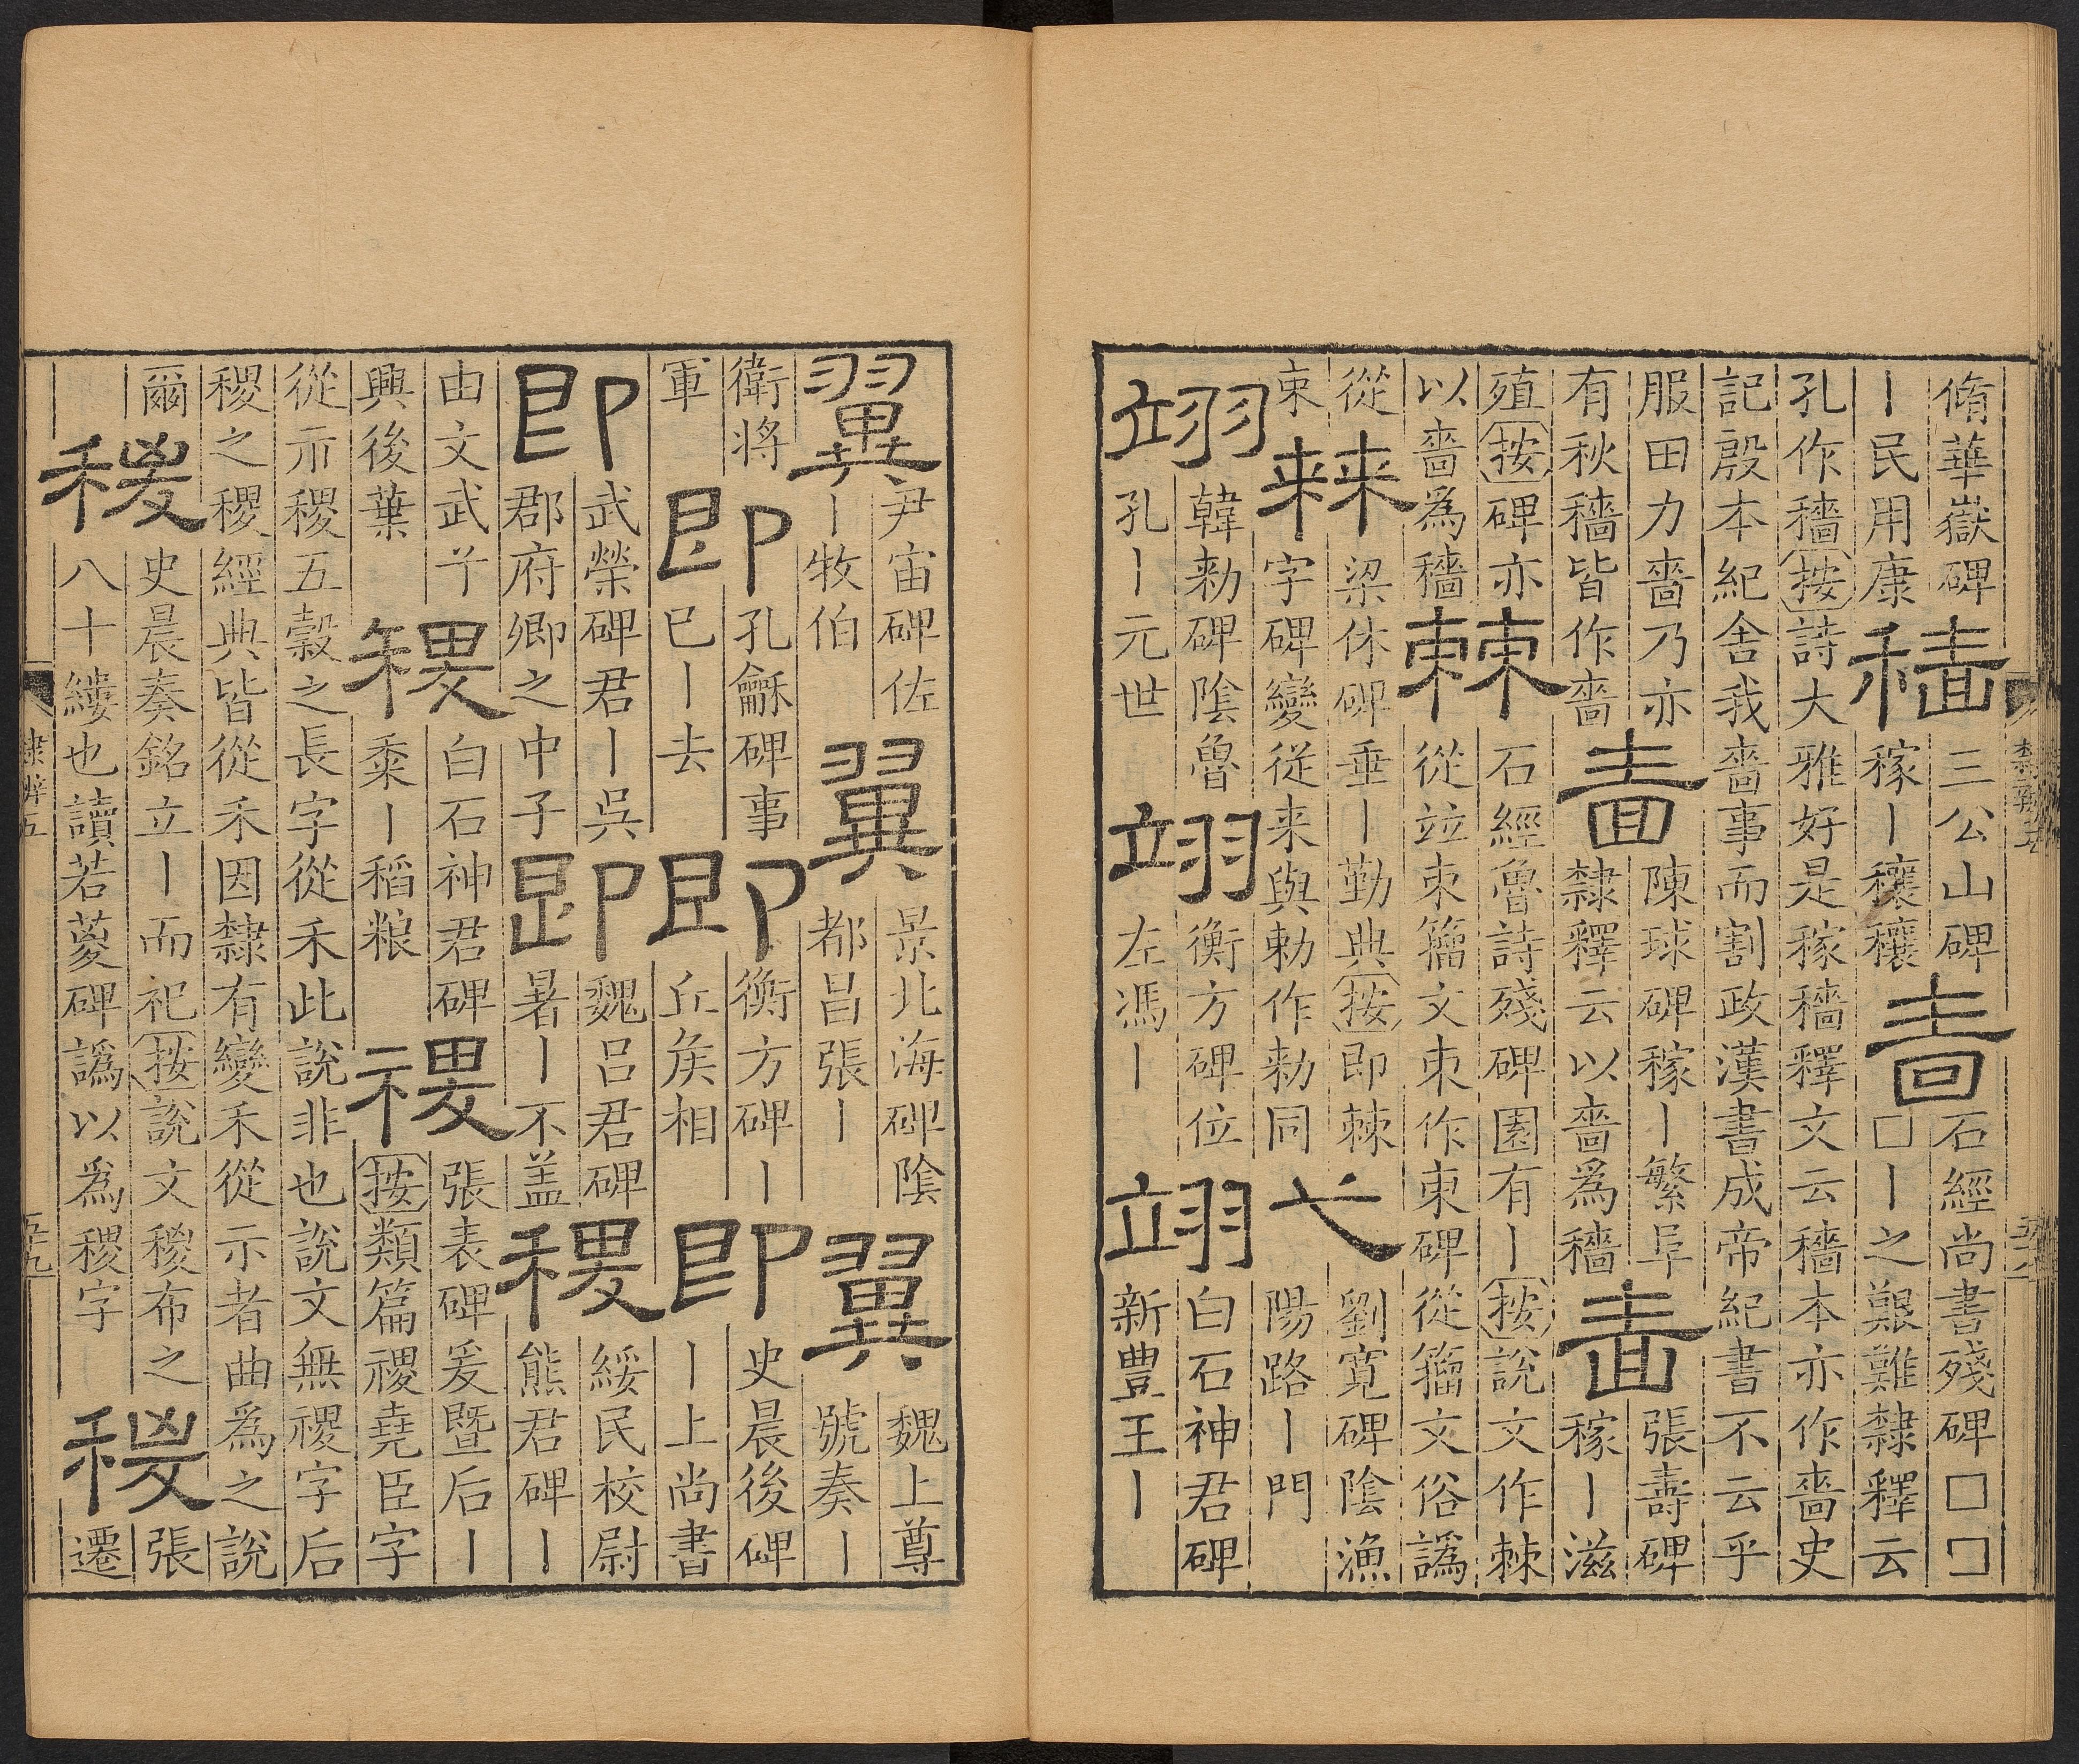 脩華嶽碑
丨民用康
穡
三公山碑
稼丨穰穰
嗇
石經尚書殘碑□□
□丨之艱難隸釋云
孔作穡按詩大雅好是稼穡釋文云穡本亦作嗇史
記殷本紀舍我嗇事而割政漢書成帝紀書不云乎
服田力嗇乃亦
有秋穡皆作嗇
嗇
陳球碑稼丨繁阜
隸釋云以嗇爲穡
嗇
張壽碑
稼丨滋
殖按碑亦
以嗇爲穡
棘
石經魯詩殘碑園有丨按說文作棘
從竝朿籀文朿作朿碑從籀文俗譌
從
朿
棘
梁休碑垂丨勤典按即棘
字碑變從来與勅作勑同
弋
劉寛碑陰漁
陽路丨門
翊
韓勑碑陰魯
孔丨元世
翊
衡方碑位
左馮丨
翊
白石神君碑
新豊王丨
翼
尹宙碑佐
丨牧伯
翼
景北海碑陰
都昌張丨
翼
魏上尊
號奏丨
衛將
軍
即
孔龢碑事
已丨去
即
衡方碑丨
丘矦相
即
史晨後碑
丨上尚書
即
武榮碑君丨吳
郡府卿之中子
即
魏呂君碑
暑丨不盖
稷
綏民校尉
熊君碑丨
由文武
興後葉
稷
白石神君碑
黍丨稻粮
禝
張表碑爰暨后丨
按類篇禝堯臣字
從示稷五穀之長字從禾此說非也說文無禝字后
稷之稷經典皆從禾因隸有變禾從示者曲爲之說
爾
稯
史晨奏銘立丨而祀按說文稯布之
八十縷也讀若葼碑譌以爲稷字
稯
張
遷
隸辨五
五十九